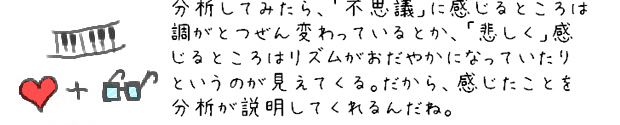 分析してみたら、「不思議」に感じるところは
調がとつぜん変わっているとか、「悲しく」感
じるところはリズムがおだやかになっていたり
というのが見えてくる。だから、感じたことを
分析が説明してくれるんだね。